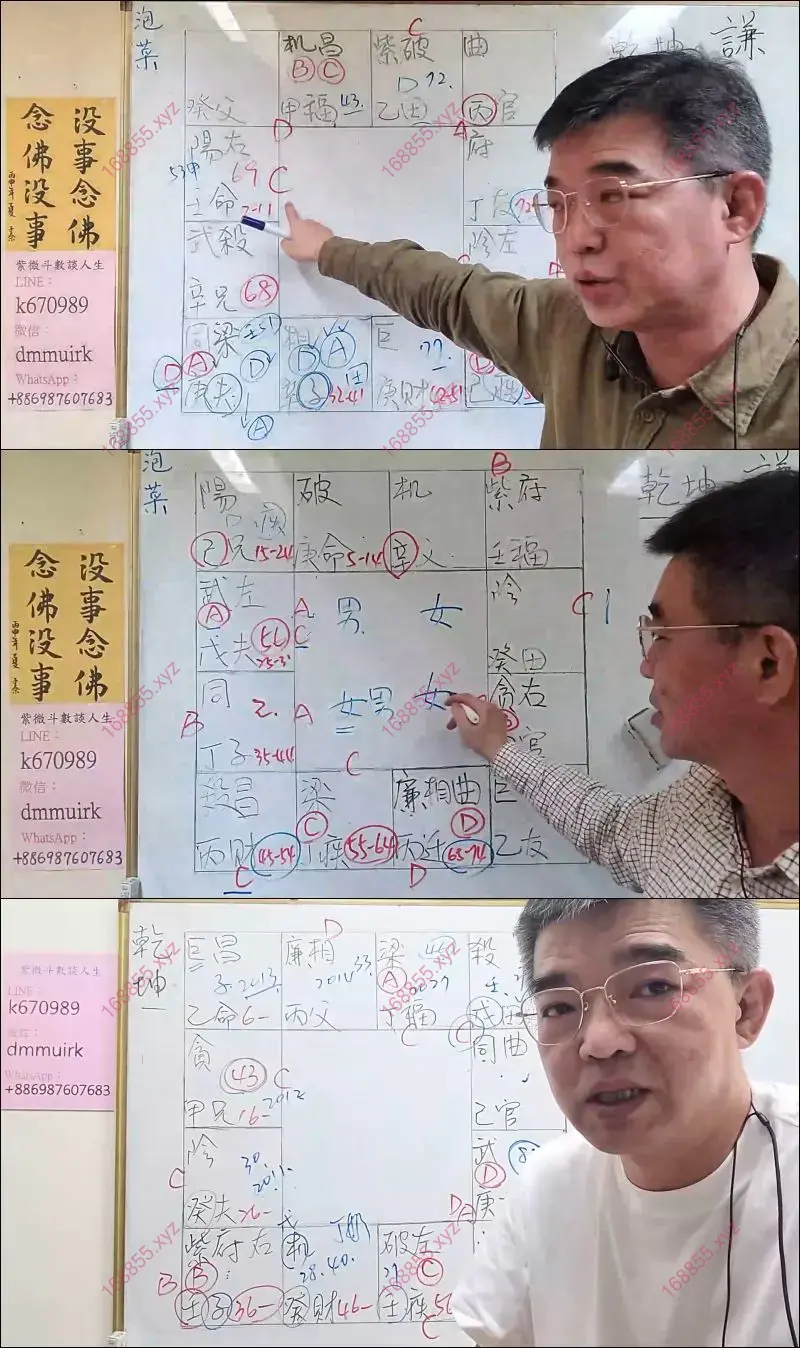 泡菜
机昌
紫破
曲
乾坤
謙
C
B C
D 72.
癸父
甲福 43.
乙田
丙官
陽右
D
A
府
53甲
69
C
壬命 2-11
丁友
没事念佛
念佛没事
紫微斗數談人生
LINE：
k670989
微信：
dmmuirk
WhatsApp：
+886987607683
武殺
陰左
辛兄 68
同梁
相
巨
D A D
D A
77
庚夫
辛子 32-41
庚財 42-51
A
168855.xyz
泡菜
陽
破
机
紫府
乾坤
謙
B
己兄 15-24
庚命 5-14
辛父
壬福
武左
A
男 女
陰
C
戊夫
56
C
癸田
同 2.
A
女 男 女
貪右
B
丁子 35-44
官
C
殺昌
梁
廉相曲
巨
C
D
丙財 45-54
疾 55-64
丙迁 65-74
乙友
C
D
没事念佛
念佛没事
紫微斗數談人生
LINE：
k670989
微信：
dmmuirk
WhatsApp：
+886987607683
168855.xyz
乾坤
巨昌
廉相
梁
殺
D
子 2013
A
乙命 6-
丙父
丁福
C
貪
43
C
同曲
甲兄 16-
2012
己官
陰
30.
2011.
武
D
C
癸夫 26-
庚
紫府右
机
破左
B
B
28.40.
C
壬子 36-
癸財 46-
壬疾 56
C
紫微斗數談人生
LINE：
k670989
dmmuirk
WhatsApp：
+886987607683
168855.xyz